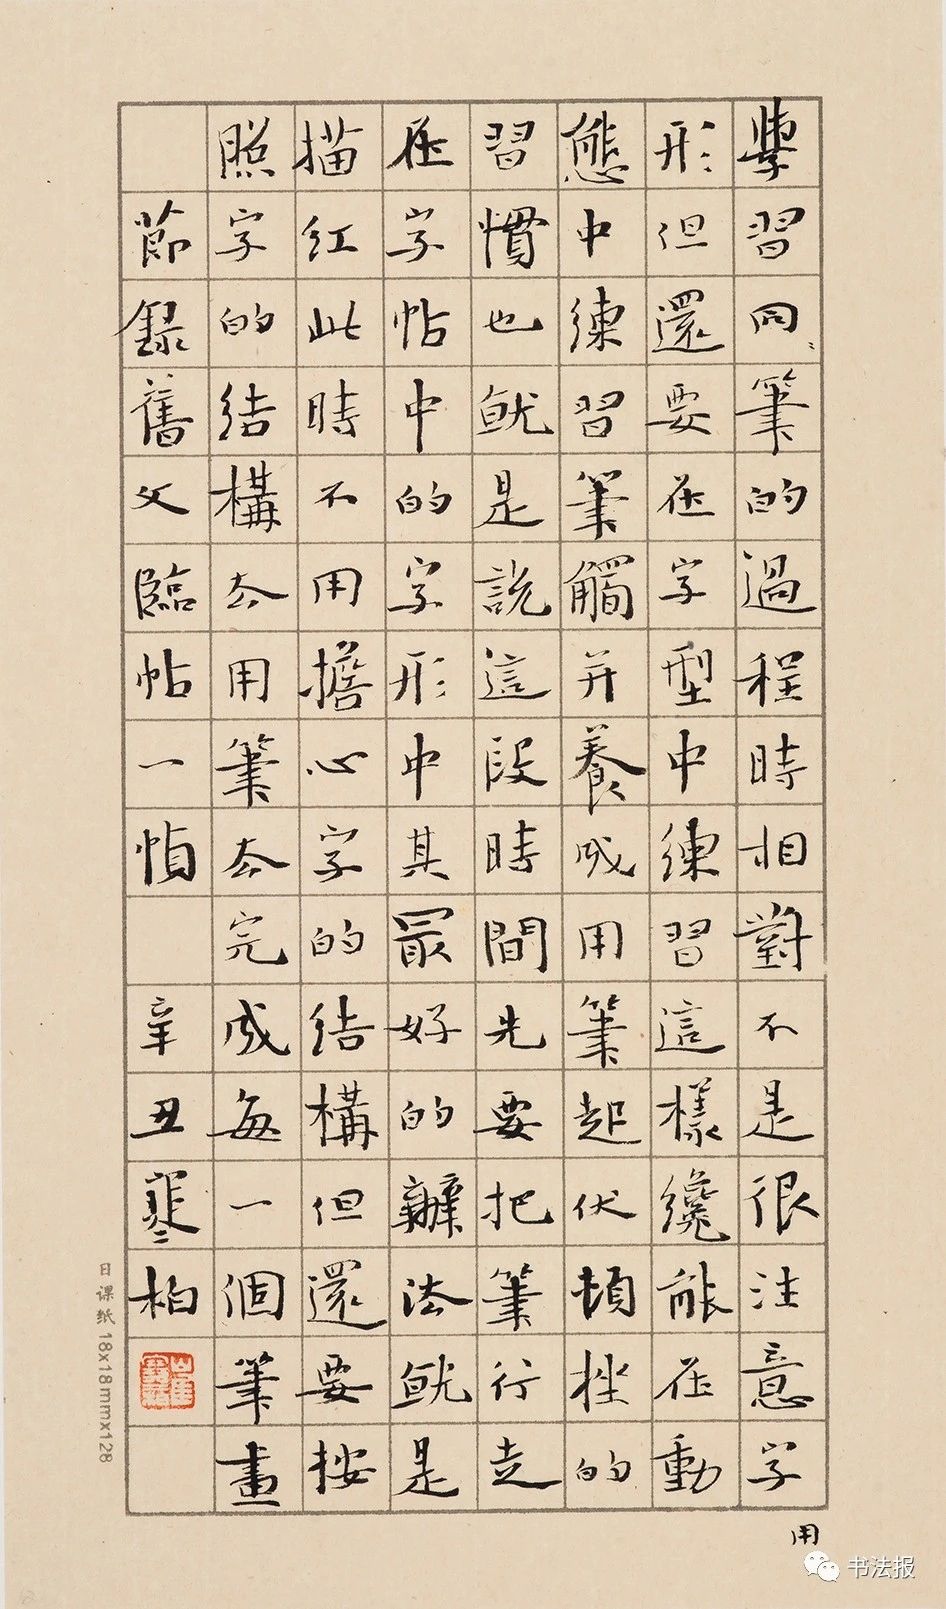 學習同筆的過程時相對不是很注意字
形但還要在字型中練習這樣纔能在動
態中練習筆觸并養成用筆起伏頓挫的
習慣也就是説這段時間先要把筆行走
在字帖中的字形中其最好的辦法就是
描紅此時不用擔心字的結構但還要按
照字的結構去用筆去完成每一個筆畫
節録舊文臨帖一幀 辛丑寒柏
用
日课纸 18x18mmx128
书法报